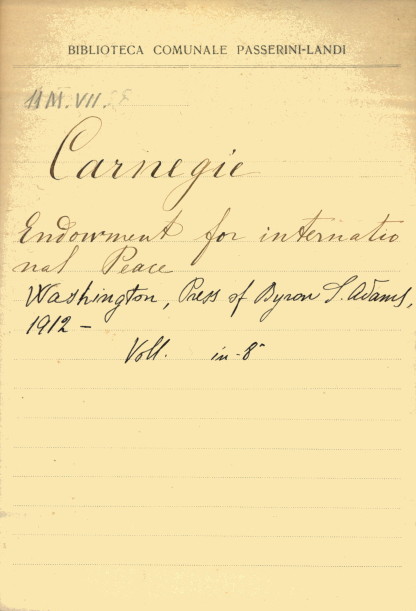 BIBLIOTECA COMUNALE PASSERINI-LANDI
11 M. VII.
Carnegie
Endowment for internatio
nal Peace
Washington, Press of Byron S. Adams,
1912 –
Voll. in-8°